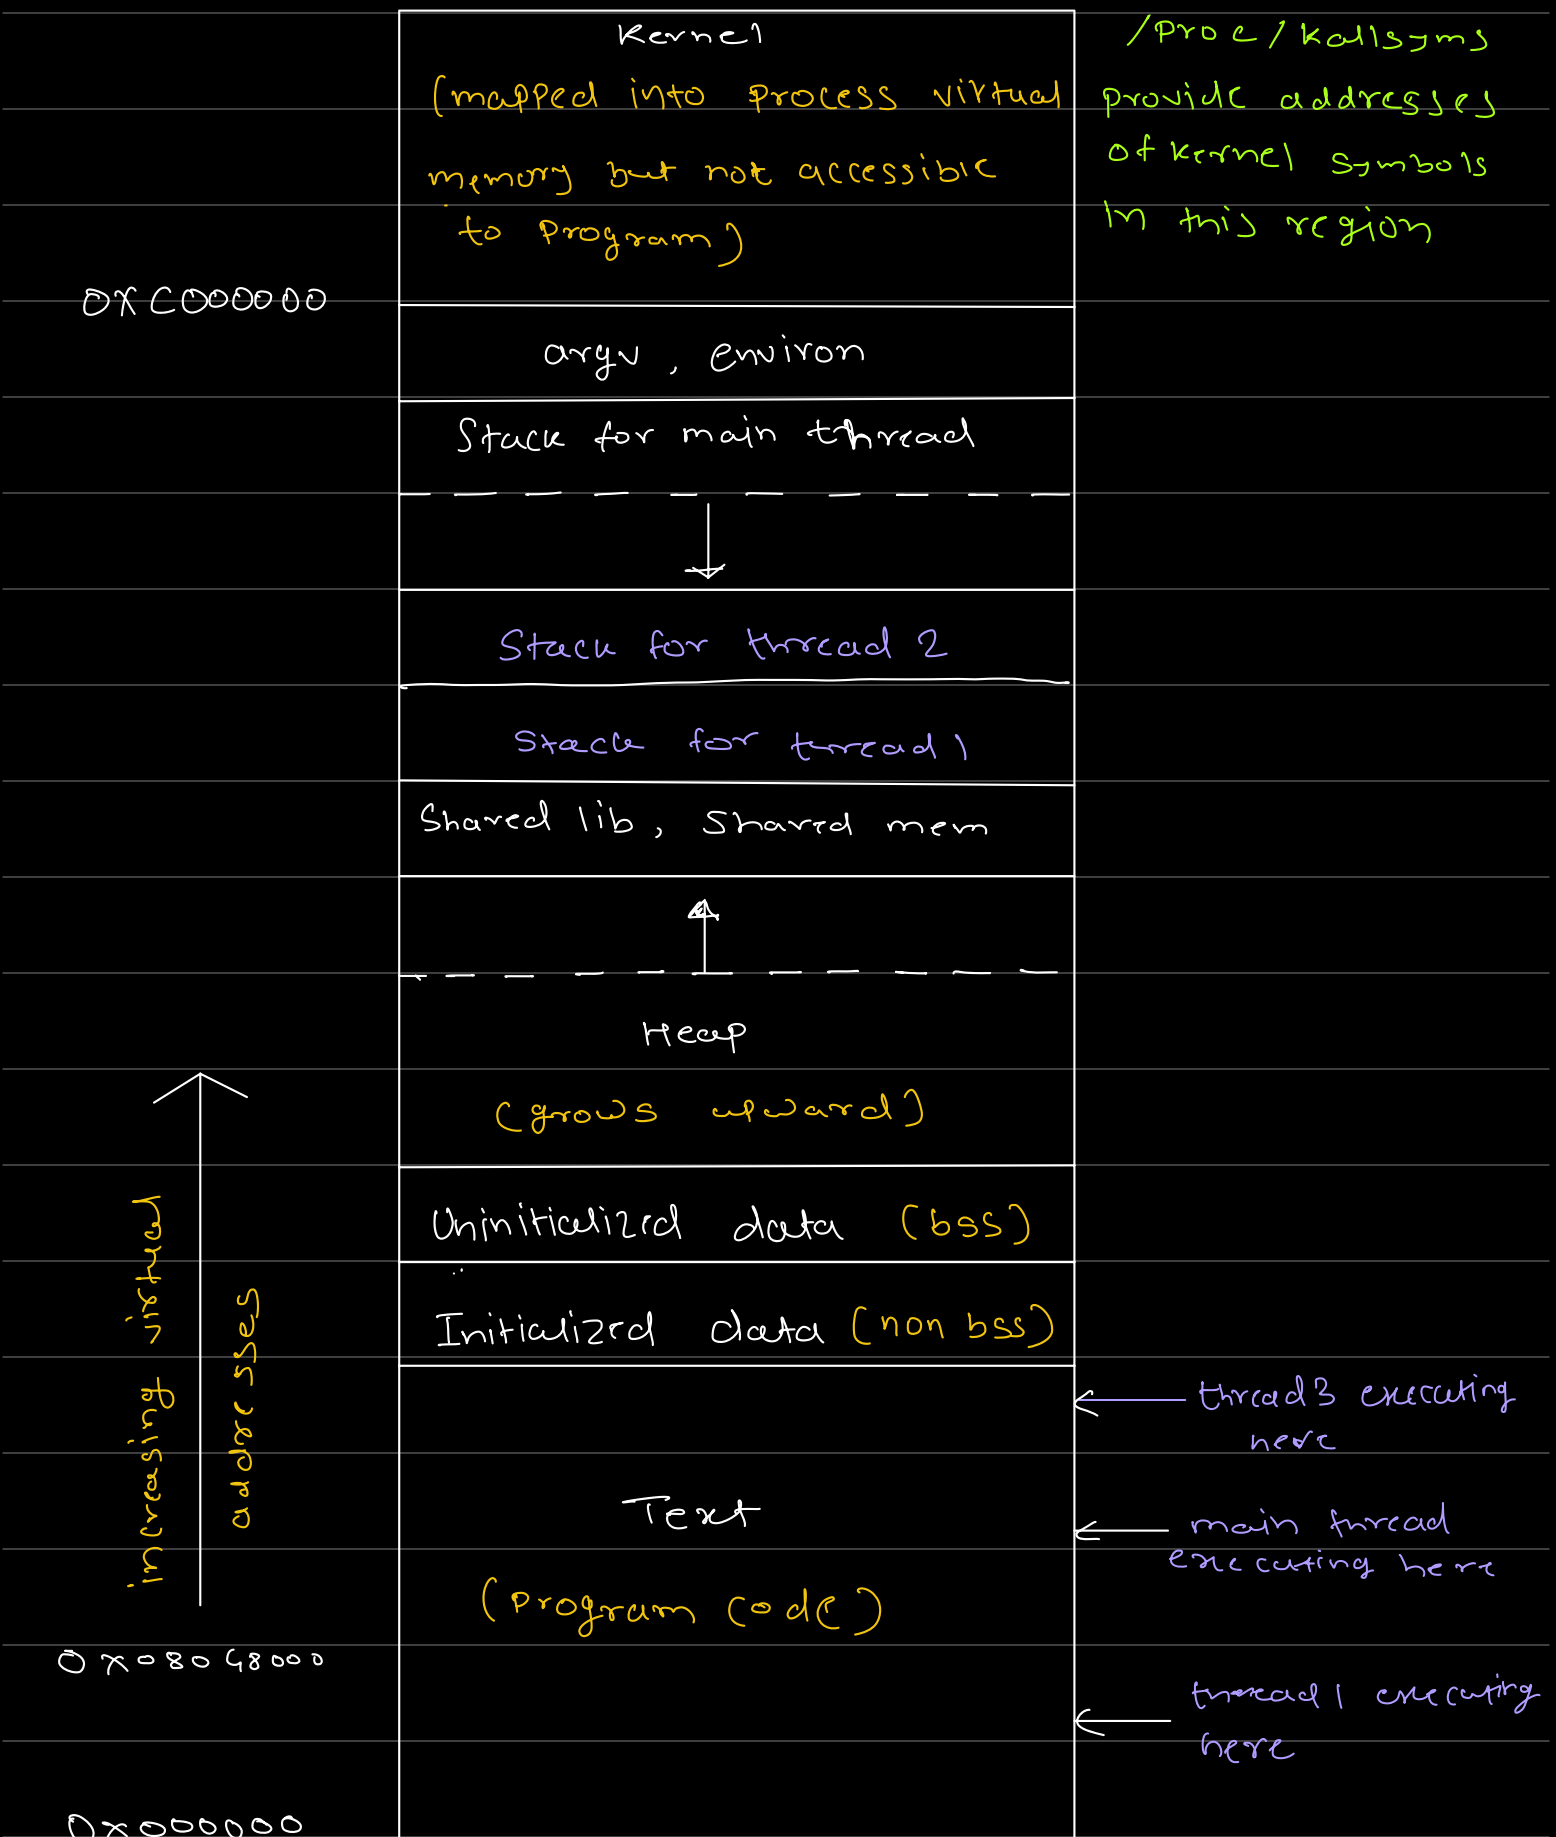 Kernel
(mapped into process virtual
memory but not accessible
to program)
/proc/kallsyms
provide addresses
of kernel symbols
In this region
0xC000000
argv, environ
Stack for main thread
Stack for thread 2
Stack for thread 1
Shared lib, Shared mem
Heap
(grows upward)
increasing virtual
addresses
Uninitialized data (bss)
Initialized data (non bss)
Text
(Program code)
thread3 executing
here
main thread
executing here
thread 1 executing
here
0x08048000
0x000000